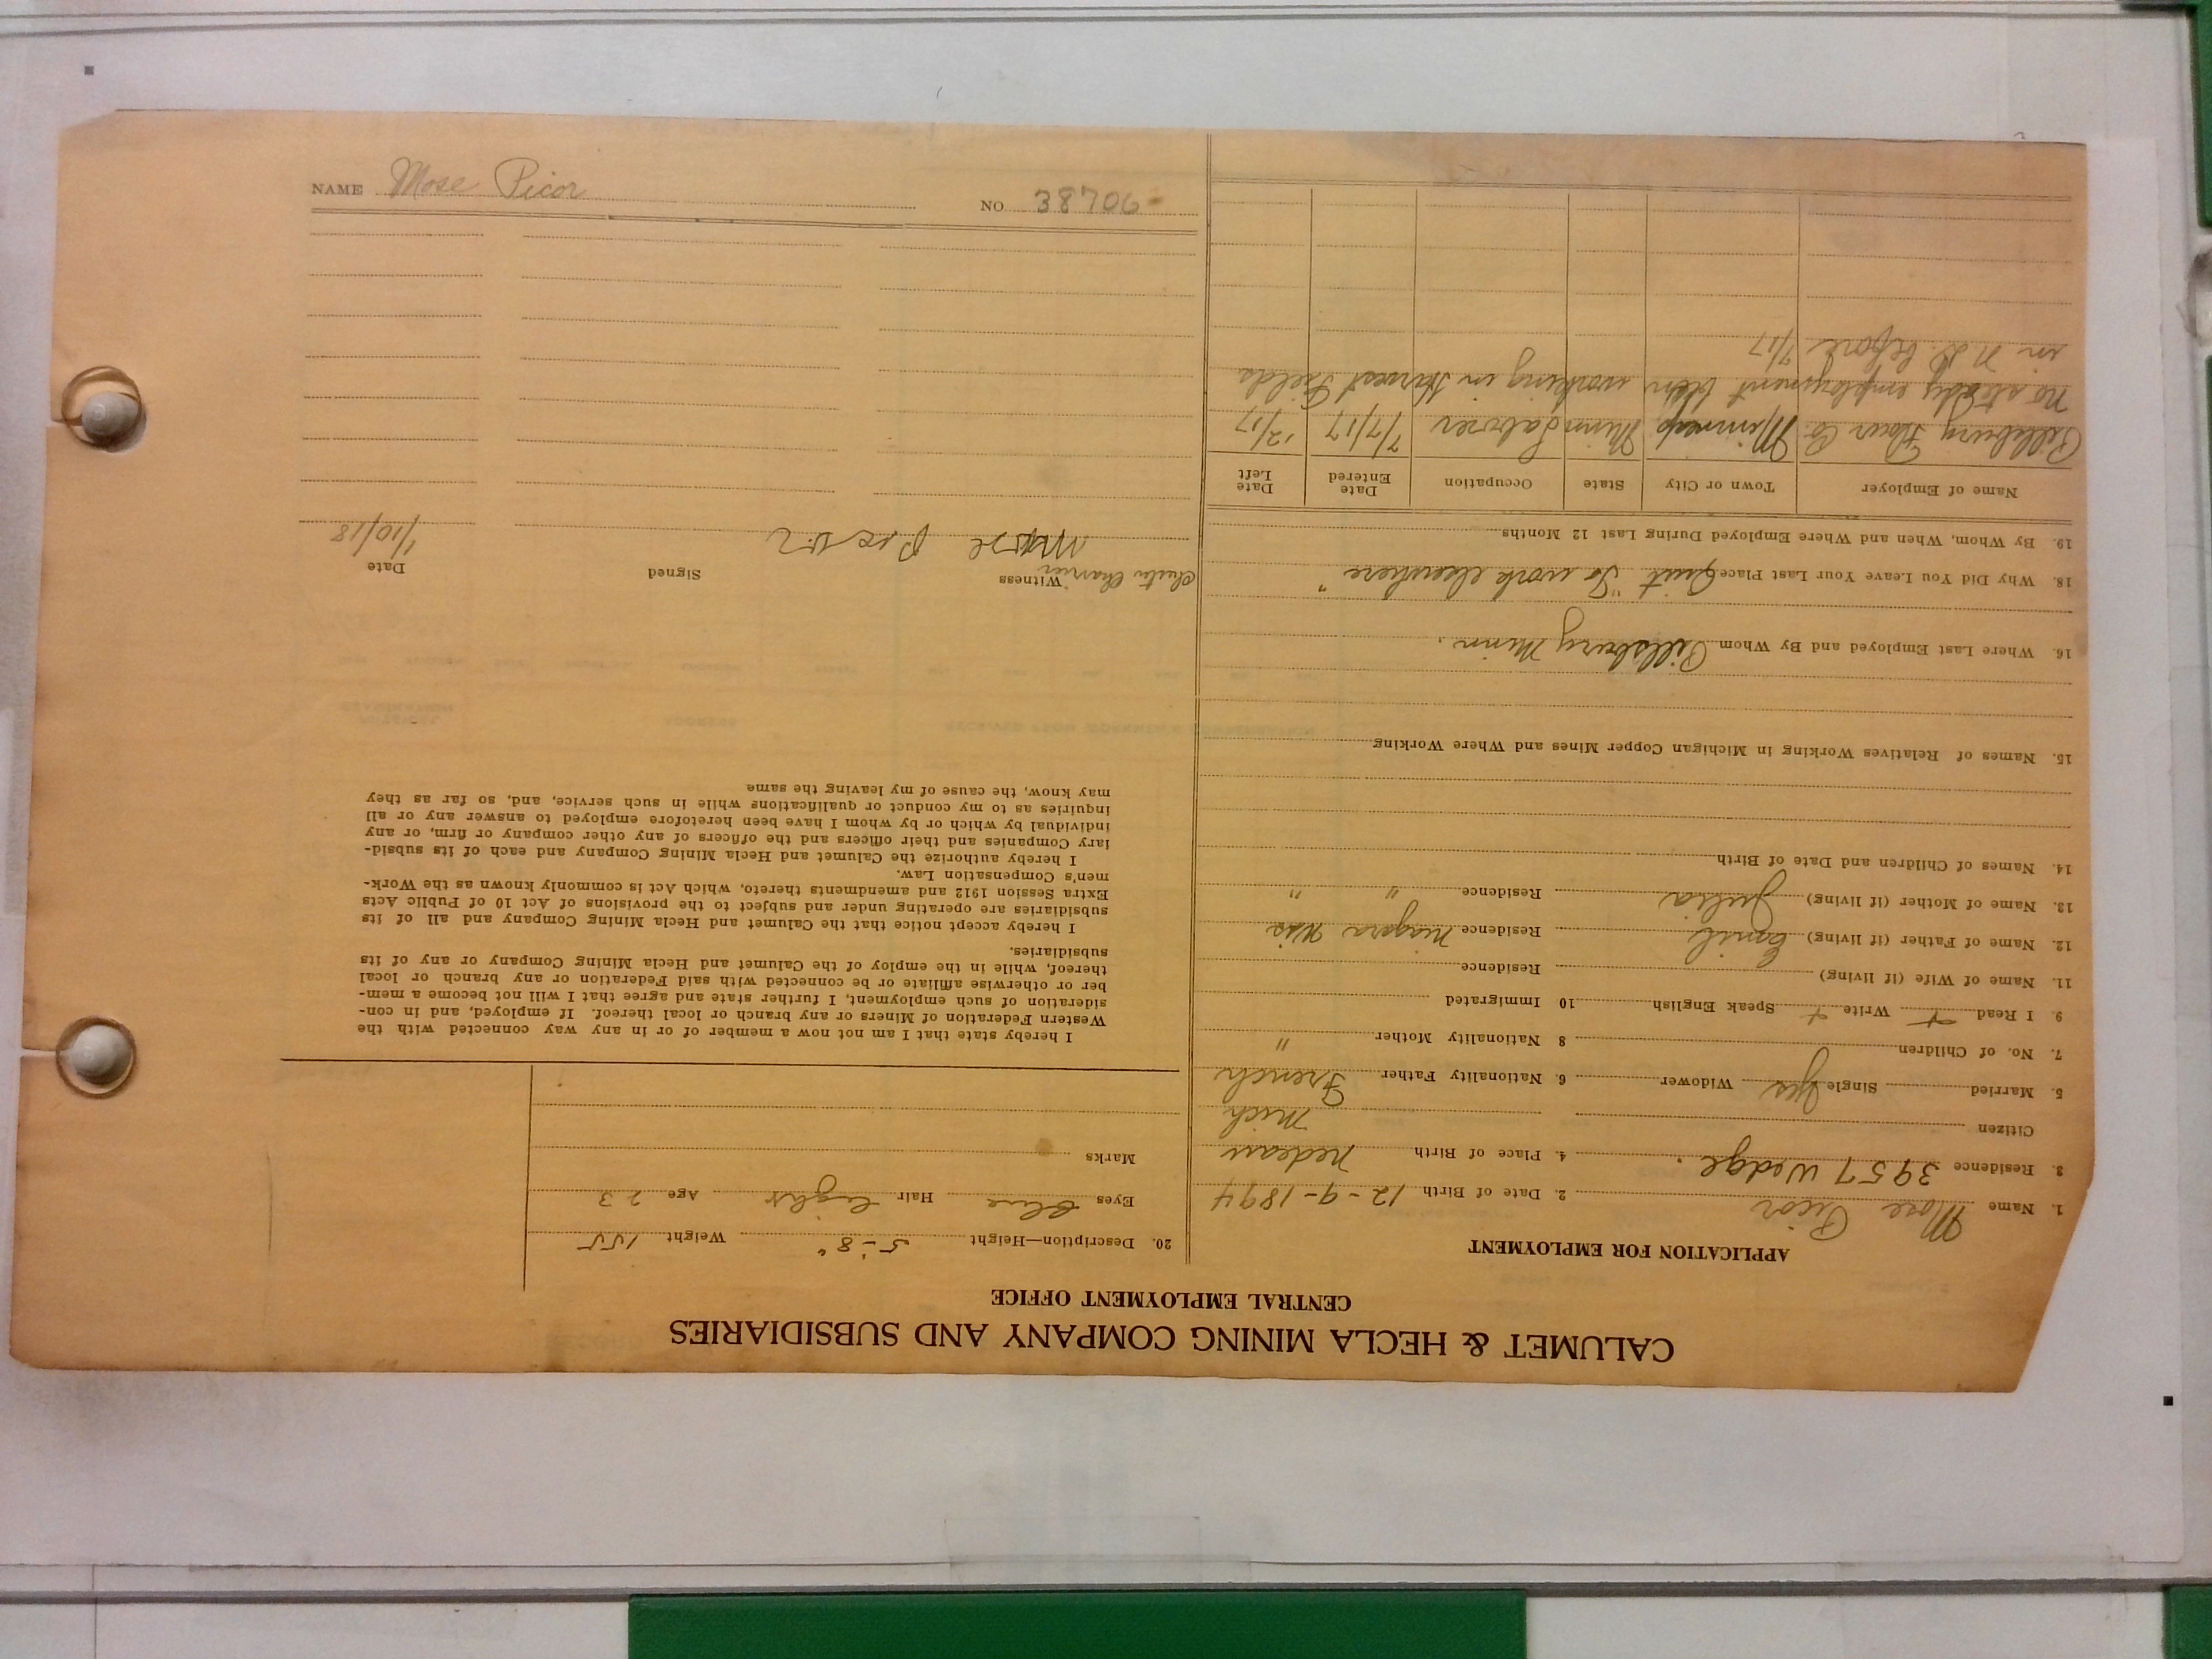 CALUMET & HECLA MINING COMPANY AND SUBSIDIARIES
CENTRAL EMPLOYMENT OFFICE
APPLICATION FOR EMPLOYMENT
1. Name Mose Picor 2. Date of Birth 12-9-1894
3. Residence 3957 Wedge. 4. Place of Birth Nedeau
Citizen Mich
5. Married Single Yes Widower 6. Nationality Father French
7. No. of Children 8 Nationality Mother "
9 I Read + Write + Speak English 10 Immigrated
11. Name of Wife (if living) Residence
12. Name of Father (if living) Emil Residence Niagara Wis
13. Name of Mother (if living) Julia Residence " "
14. Names of Children and Date of Birth
15. Names of Relatives Working in Michigan Copper Mines and Where Working
16. Where Last Employed and By Whom Pillsbury Minn.
18. Why Did You Leave Your Last Place Quit "To work elsewhere"
19. By Whom, When and Where Employed During Last 12 Months
Name of Employer Town or City State Occupation Date Entered Date Left
Pillsbury Flour Co. Minneap Minn Laborer 7/7/17 12/17
No steady employment been working in Harvest Fields
in N.D. before 7/17
20. Description—Height 5-8" Weight 155
Eyes Blue Hair Light Age 23
Marks
I hereby state that I am not now a member of or in any way connected with the
Western Federation of Miners or any branch or local thereof. If employed, and in con-
sideration of such employment, I further state and agree that I will not become a mem-
ber or otherwise affiliate or be connected with said Federation or any branch or local
thereof, while in the employ of the Calumet and Hecla Mining Company or any of its
subsidiaries.
I hereby accept notice that the Calumet and Hecla Mining Company and all of its
subsidiaries are operating under and subject to the provisions of Act 10 of Public Acts
Extra Session 1912 and amendments thereto, which Act is commonly known as the Work-
men's Compensation Law.
I hereby authorize the Calumet and Hecla Mining Company and each of its subsid-
iary Companies and their officers and the officers of any other company or firm, or any
individual by which or by whom I have been heretofore employed to answer any or all
inquiries as to my conduct or qualifications while in such service, and, so far as they
may know, the cause of my leaving the same
Witness Signed Date
1/10/18
NAME Mose Picor NO. 38706